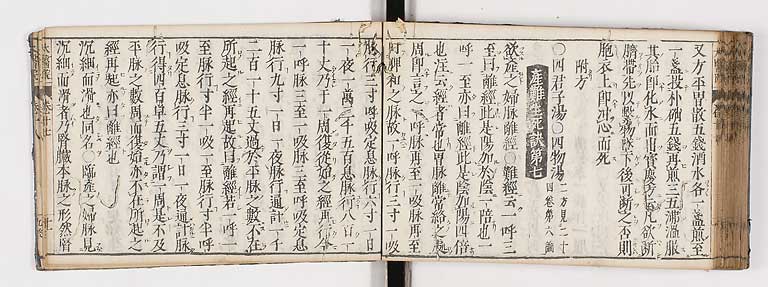 又方平胃散五錢酒水各一盞煎至
一盞投朴硝五錢再煎三五沸溫服
其胎即化水而出 方云凡欲斷
臍帶先以 物墜下後可斷之否則
胞衣上即沖心而死
附方
〇四君子湯〇四物湯二方見二十四卷第八
產難生死訣第七
欲產之婦脉離經〇難經云一呼三
至曰離經此是陽加於陰二倍也一
呼一至亦曰離經此是陰加陽四倍
也注云經者常也 脉離常 之
周 言之一呼脉再至一吸脉再至
曰 和之脉故一呼脉行三寸一吸
脉行三寸呼吸定息脉行六寸一日
一夜一萬三千五百息脉行八百一
十丈乃于一周復從始之經再行今
一呼脉三至一吸脉三至呼吸定息
脉行九寸一日一夜脉行通計一千
二百一十五丈過於平脉之數不在
所起之經再起故曰離經若一呼一
至脉行寸半一吸一至脉行寸半呼
吸定息脉行三寸一日一夜通計脉
行得四百單五丈乃謂一周是不及
平脉之數周而復始亦不在所起之
經再起亦曰離經也
沉細而滑也同名〇臨產之婦脉見
沉細而滑者乃腎臟本脉之形然腎